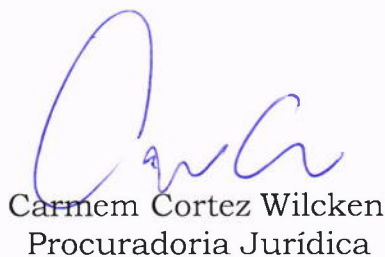 Carmem Cortez Wilcken
Procuradoria Jurídica